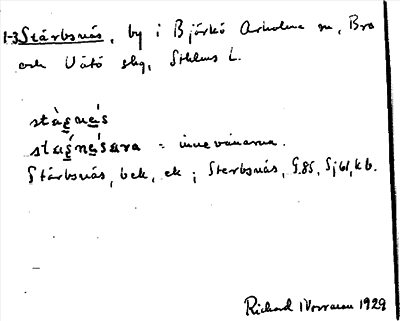 1-3 Stärbsnäs, by i Björkö Arholma sn, Bro
och Vätö skg, Sthlms L.
stàgnä̀s
stagnäsara = innevånarna.
Stärbsnäs, bek, ek; Sterbsnäs, G.85, Sj61, kb.
Richard 1929